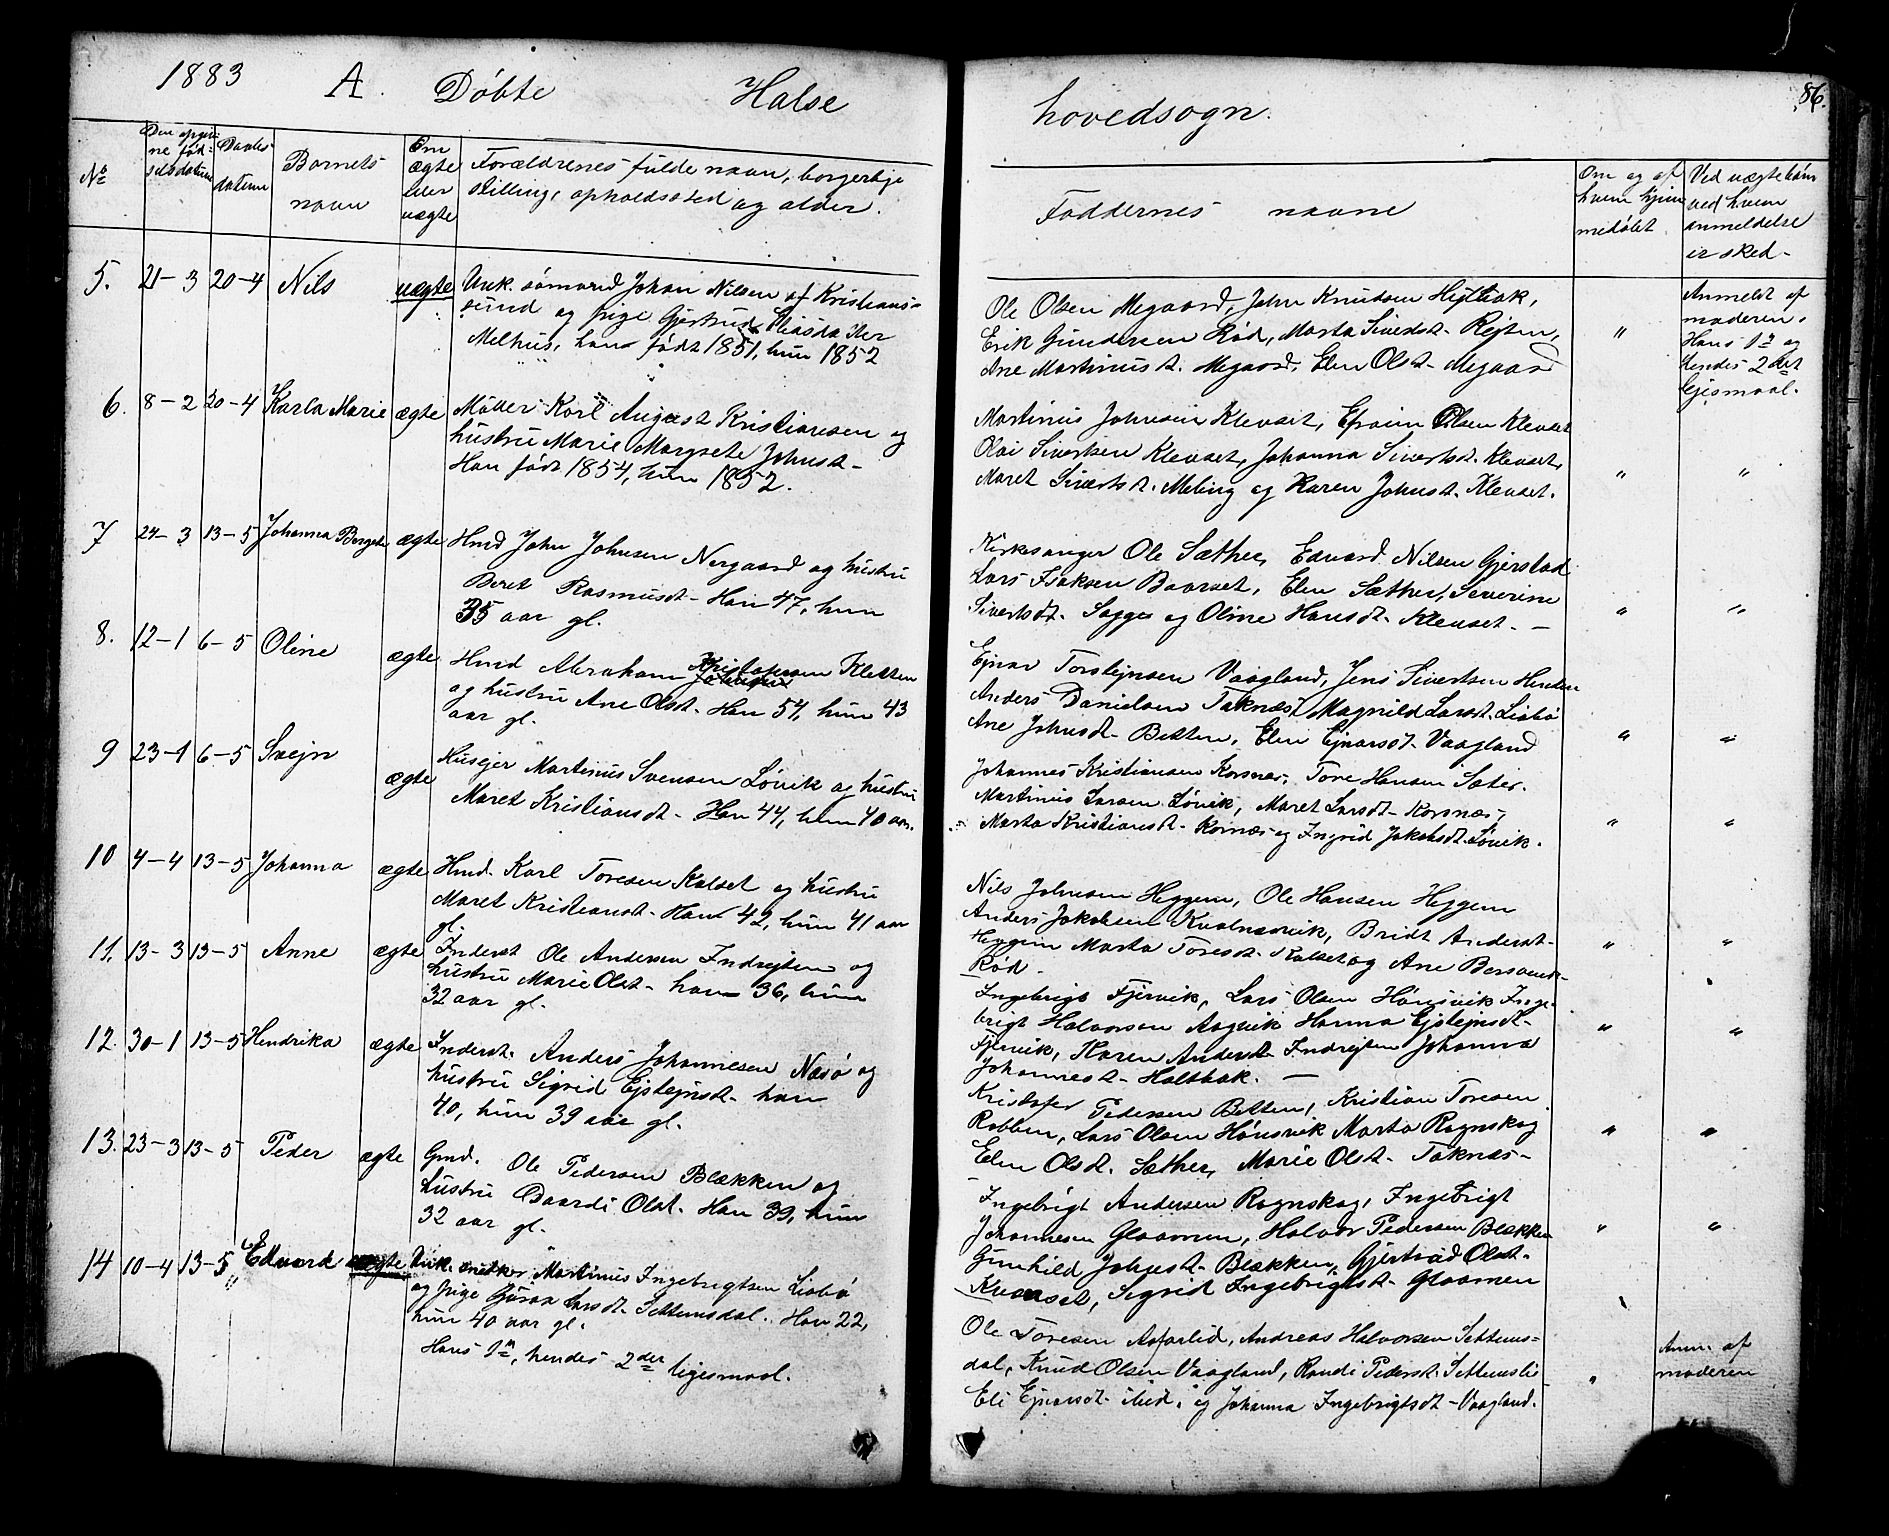 1883 A. Döbte Halse
hovedsogn.
86.
No
Den opgiv-
ne föd-
selsdatum
Daabs-
datum
Barnets
navn
Om
ægte
eller
uægte
Forældrenes fulde navn, borgerlige
stilling, opholdssted og alder.
Faddernes navne
Om og af
hvem hjem-
medöbt
Ved uægte börn
ved hvem
anmeldelse
er sked.
5. 21-3 20-4 Nils uægte Unk. sömand Johan Nilsen af Kristians-
sund og pige Gjertrud Eliasdatter
Melhus, han födt 1851, hun 1852
Ole Olsen Megaard, John Knudsen
Erik Gundersen Röd, Marta Sivertsdt. Rejten,
Ane Martinusdt. Megaard, Elen Olsdt. Megaard
"
Anmeldt af
moderen.
Hans 1ste og
hendes 2det
lejesmaal.
6. 8-2 20-4 Karla Marie ægte Möller Karl August Kristiansen og
hustru Marie Margrete Johnsdt.
Han födt 1854, hun 1852.
Martinus Johnsen Klevset, Efraim Olsen Klevset
Olai Sivertsen Klevset, Johanna Sivertsdt. Klevset,
Maret Sivertsdt. Meling og Karen Johnsdt. Klevset.
" "
7 24-3 13-5 Johanna Bergete ægte Hmd John Johnsen Nergaard og hustru
Beret Rasmusdt. Han 47, hun
35 aar gl.
Kirkesanger Ole Sæther, Edvard Nilsen Gjerstad
Lars Isaksen Baarset, Elen Sæther, Severine
Sivertsdt. Sagge og Oline Hansdt. Klevset. —
" "
8. 12-1 6-5 Oline ægte Hmd Abraham Kristofersen Kletten
og hustru Ane Olsdt. Han 54, hun 43
aar gl.
Ejnar Torstejnsen Vaagland, Jens Sivertsen Henden
Anders Danielsen Taknæs, Magnild Larsdt. Liabö
Ane Johnsdt. Betten, Elen Ejnarsdt. Vaagland
" "
9 23-1 6-5 Svejn ægte Husejer Martinus Svensen Lövik og hustru
Maret Kristiansdt. Han 44, hun 40 aar.
Johannes Kristiansen Korsnæs, Tore Hansen Sæter.
Martinus Larsen Lövik, Maret Larsdt. Korsnæs,
Marta Kristiansdt. Korsnæs og Ingrid Jakobsdt. Lövik.
" "
10 4-4 13-5 Johanna ægte Hmd. Karl Toresen Kalset og hustru
Maret Kristiansdt. Han 42, hun 41 aar
gl.
Nils Johnsen Heggem, Ole Hansen Heggem
Anders Jakobsen Kvalnæsvik, Bridt Andersdt.
Heggem Marta Toresdt. Kalset og Ane
Röd.
" "
11. 13-3 13-5 Anne ægte Inderst Ole Andersen Indrejten og
hustru Marie Olsdt. han 36, hun
32 aar gl.
Ingebrigt Fjervik, Lars Olsen Hönsvik Inge-
brigt Halvorsen Aagvik Hanna Ejstejnsdt.
Fjervik, Karen Andersdt. Indrejten Johanna
Johannesdt. Holtbak. —
" "
12. 30-1 13-5 Hendrika ægte Inderst. Anders Johannesen Næsö og
hustru Sigrid Ejstejnsdt. han
40, hun 39 aar gl.
Kristofer Pedersen Betten, Kristian Toresen
Robben, Lars Olsen Hönsvik Marta Rognskog
Elen Olsdt. Sæther, Marie Olsdt. Taknæs-
" "
13. 23-3 13-5 Peder ægte Gmd. Ole Pedersen Blækken og
hustru Baardi Olsdt. Han 39, hun
32 aar gl.
Ingebrigt Andersen Rognskog, Ingebrigt
Johannesen Gloamen, Halvor Pedersen Blækken
Gunhild Johnsdt. Blækken, Gjertrud Olsdt.
Sigrid Ingebrigtsdt. Gloamen
" "
14 10-4 13-5 Edvard uægte Unk. snekker Martinus Ingebrigtsen Liabö
og pige Guroa Larsdt. Settemsdal. Han 22,
hun 40 aar gl.
Hans 1ste, hendes 2det lejesmaal.
Ole Toresen Asfarlid, Andreas Halvorsen Settems-
dal, Knud Olsen Vaagland, Randi Pedersdt. Settemslie
Eli Ejnarsdt. ibid. og Johanna Ingebrigtsdt. Vaagland.
"
Anm. af
moderen